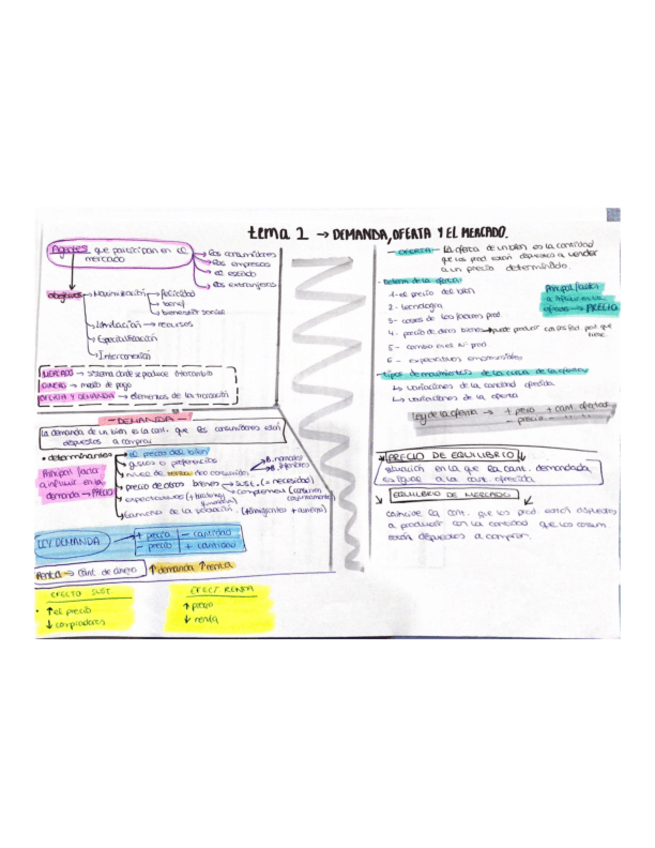 tema 1 → DEMANDA, OFERTA Y EL MERCADO.
Agentes que participan en el
mercado
los consumidores
las empresas
el estado
los extranjeros
objetivos
Maximización
felicidad
benef
bienestar social
Limitación → recursos
Especialización
Interconexión
MERCADO → sistema donde se produce intercambio
DINERO → medio de pago
OFERTA Y DEMANDA → elementos de la transacción
- DEMANDA -
La demanda de un bien es la cant. que los consumidores están
dispuestos a comprar
• determinantes
el precio del bien
gustos o preferencias
nivel de renta del consumidor
B. normales
B. inferiores
precio de otros bienes
sust. (= necesidad)
complement. (consumen
conjuntamente)
expectativas
tamaño de la población. (+inmigrantes + aumento)
Principal factor
a influir en la
demanda → PRECIO
LEY DEMANDA
+ precio - cantidad
- precio + cantidad
Renta → cant. de dinero ↑ demanda ↑ renta
EFECTO SUST.
• ↑ el precio
↓ compradores
EFECT. RENTA
↑ precio
↓ renta
- OFERTA - La oferta de un bien es la cantidad
que los prod. están dispuestos a vender
a un precio determinado.
• Determ. de la oferta:
1 - el precio del bien
2 - tecnología
3 - costes de los factores prod.
4 - precio de otros bienes → puede producir con los fact. prod. que
tiene.
5 - cambio en el Nº prod.
6 - expectativas empresariales
Principal factor
a influir en la
oferta → PRECIO
- tipos de movimientos de la curva de la oferta
↳ variaciones de la cantidad ofrecida
↳ variaciones de la oferta
Ley de la oferta → + precio + cant. ofertas
- precio - " " "
* PRECIO DE EQUILIBRIO
situación en la que la cant. demandada
es igual a la cant. ofrecida.
EQUILIBRIO DE MERCADO
coincide la cant. que los prod. están dispuestos
a producir con la cantidad que los consum.
están dispuestos a comprar.